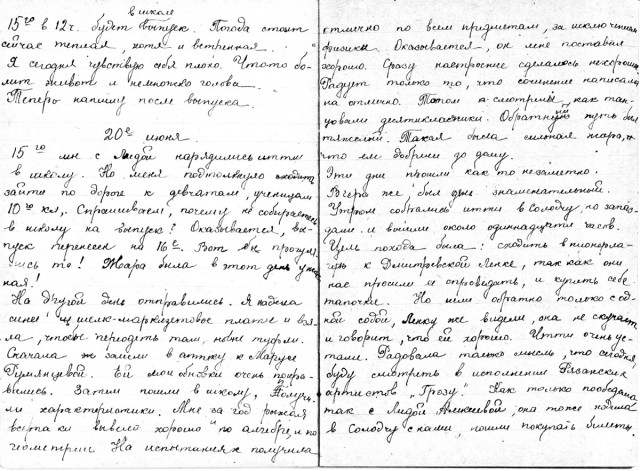 в школе
15го в 12 ч. будет выпуск. Погода стоит
сейчас теплая, хотя и ветренная.
Я сегодня чувствую себя плохо. Что-то бо-
лит живот и немножко голова.
Теперь напишу после выпуска.
20е июня
15го мы с Лидой нарядились итти
в школу. Но меня подтолкнуло сходить
зайти по дороге к девчатам, ученицам
10го кл. Спрашиваем, почему не собираетесь
в школу на выпуск? Оказывается, вы-
пуск перенесен на 16е. Вот
лись то! Жара была в этот день
ная!
На другой день отправились. Я надела
синее шелк-маркизетовое платье и взя-
ла, чтобы переодеть там, туфли.
Сначала же зашли в аптеку к Марусе
Румянцевой. Ей мои обновки очень понра-
вились. Затем пошли в школу. Получи-
ли характеристики. Мне за год
всё таки вывело "хорошо" по алгебре, и по
геометрии. На испытаниях получила
отлично по всем предметам, за исключением
физики. Оказывается, он мне поставил
хорошо. Сразу настроение сделалось нехорошим.
Радует только то, что сочинение написала
на отлично. Потом смотрели, как тан-
цовали десятиклассники. Обратный путь был
тяжелый. Такая была сильная жара,
что еле добрели до дому.
Эти дни прошли как то незаметно.
Вчера же был день знаменательный.
Утром собрались итти в Солодчу, но запоз-
дали и вышли около одиннадцати часов.
Цель похода была: сходить в пионерла-
герь к Дмитревской Ленке, так как они
нас просили её спроведать, и купить себе
тапочки. Но шли обратно только с од-
ной содой, Ленку же видели, она не скучает
и говорит, что ей хорошо. Итти очень ус-
тали. Радовала только мысль, что сегодня
буду смотреть в исполнении Рязанских
артистов „Грозу". Как только пообедала
так с Лидой Алексеевой, она тоже ходила
в Солодчу с нами, пошли покупать билеты.